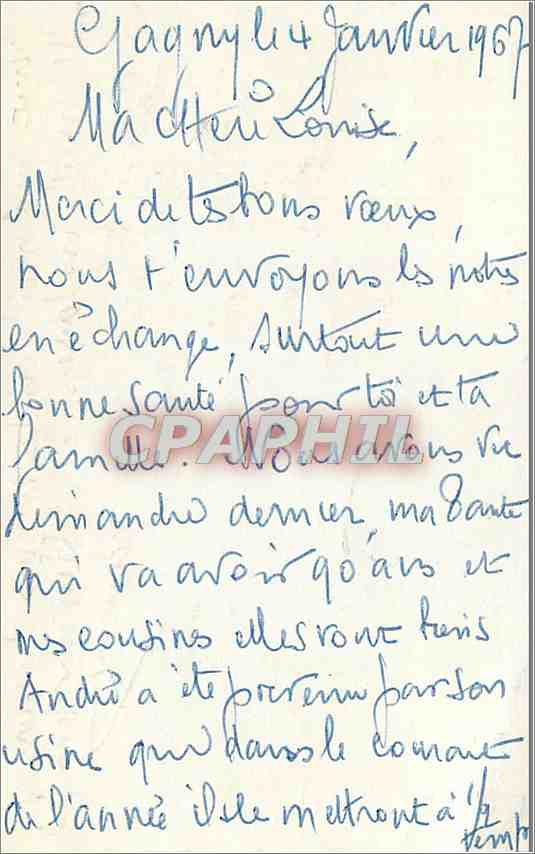 Gagny le 4 Janvier 1967
Ma chère Louise,
Merci de tes bons vœux,
nous t'envoyons les notres
en échange, surtout une
bonne santé pour toi et ta
famille. Nous avons vu
dimanche dernier, ma Tante
qui va avoir 90 ans et
mes cousines elles vont bien
André a été prevenu par son
usine que dans le courant
de l'année ils le mettront à 1/2
temps
CPAPHIL